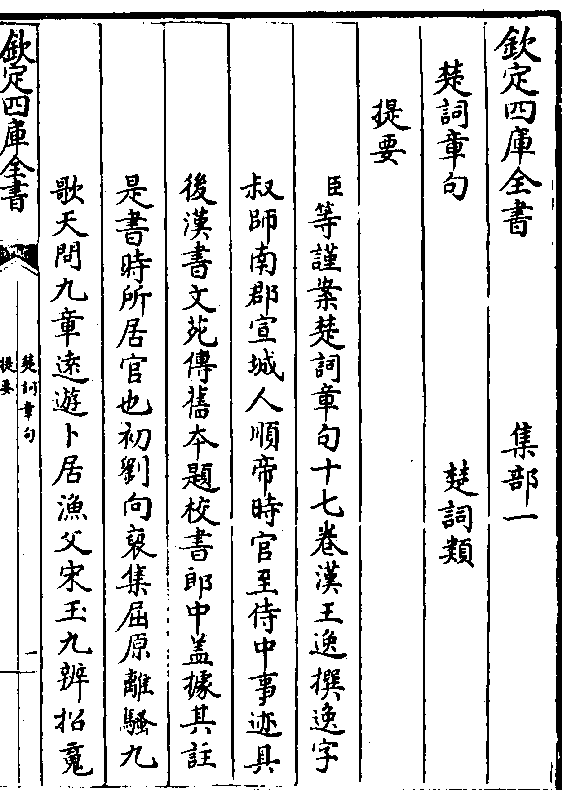 欽定四庫全書　集部一
楚詞章句　楚詞類
提要
臣等謹案楚詞章句十七卷漢王逸撰逸字
叔師南郡宣城人順帝時官至侍中事迹具
後漢書文苑傳舊本題校書郎中盖據其註
是書時所居官也初劉向裒集屈原離騷九
歌天問九章遠遊卜居漁父宋玉九辨招䰟
欽定四庫全書
楚詞章句
提要
一